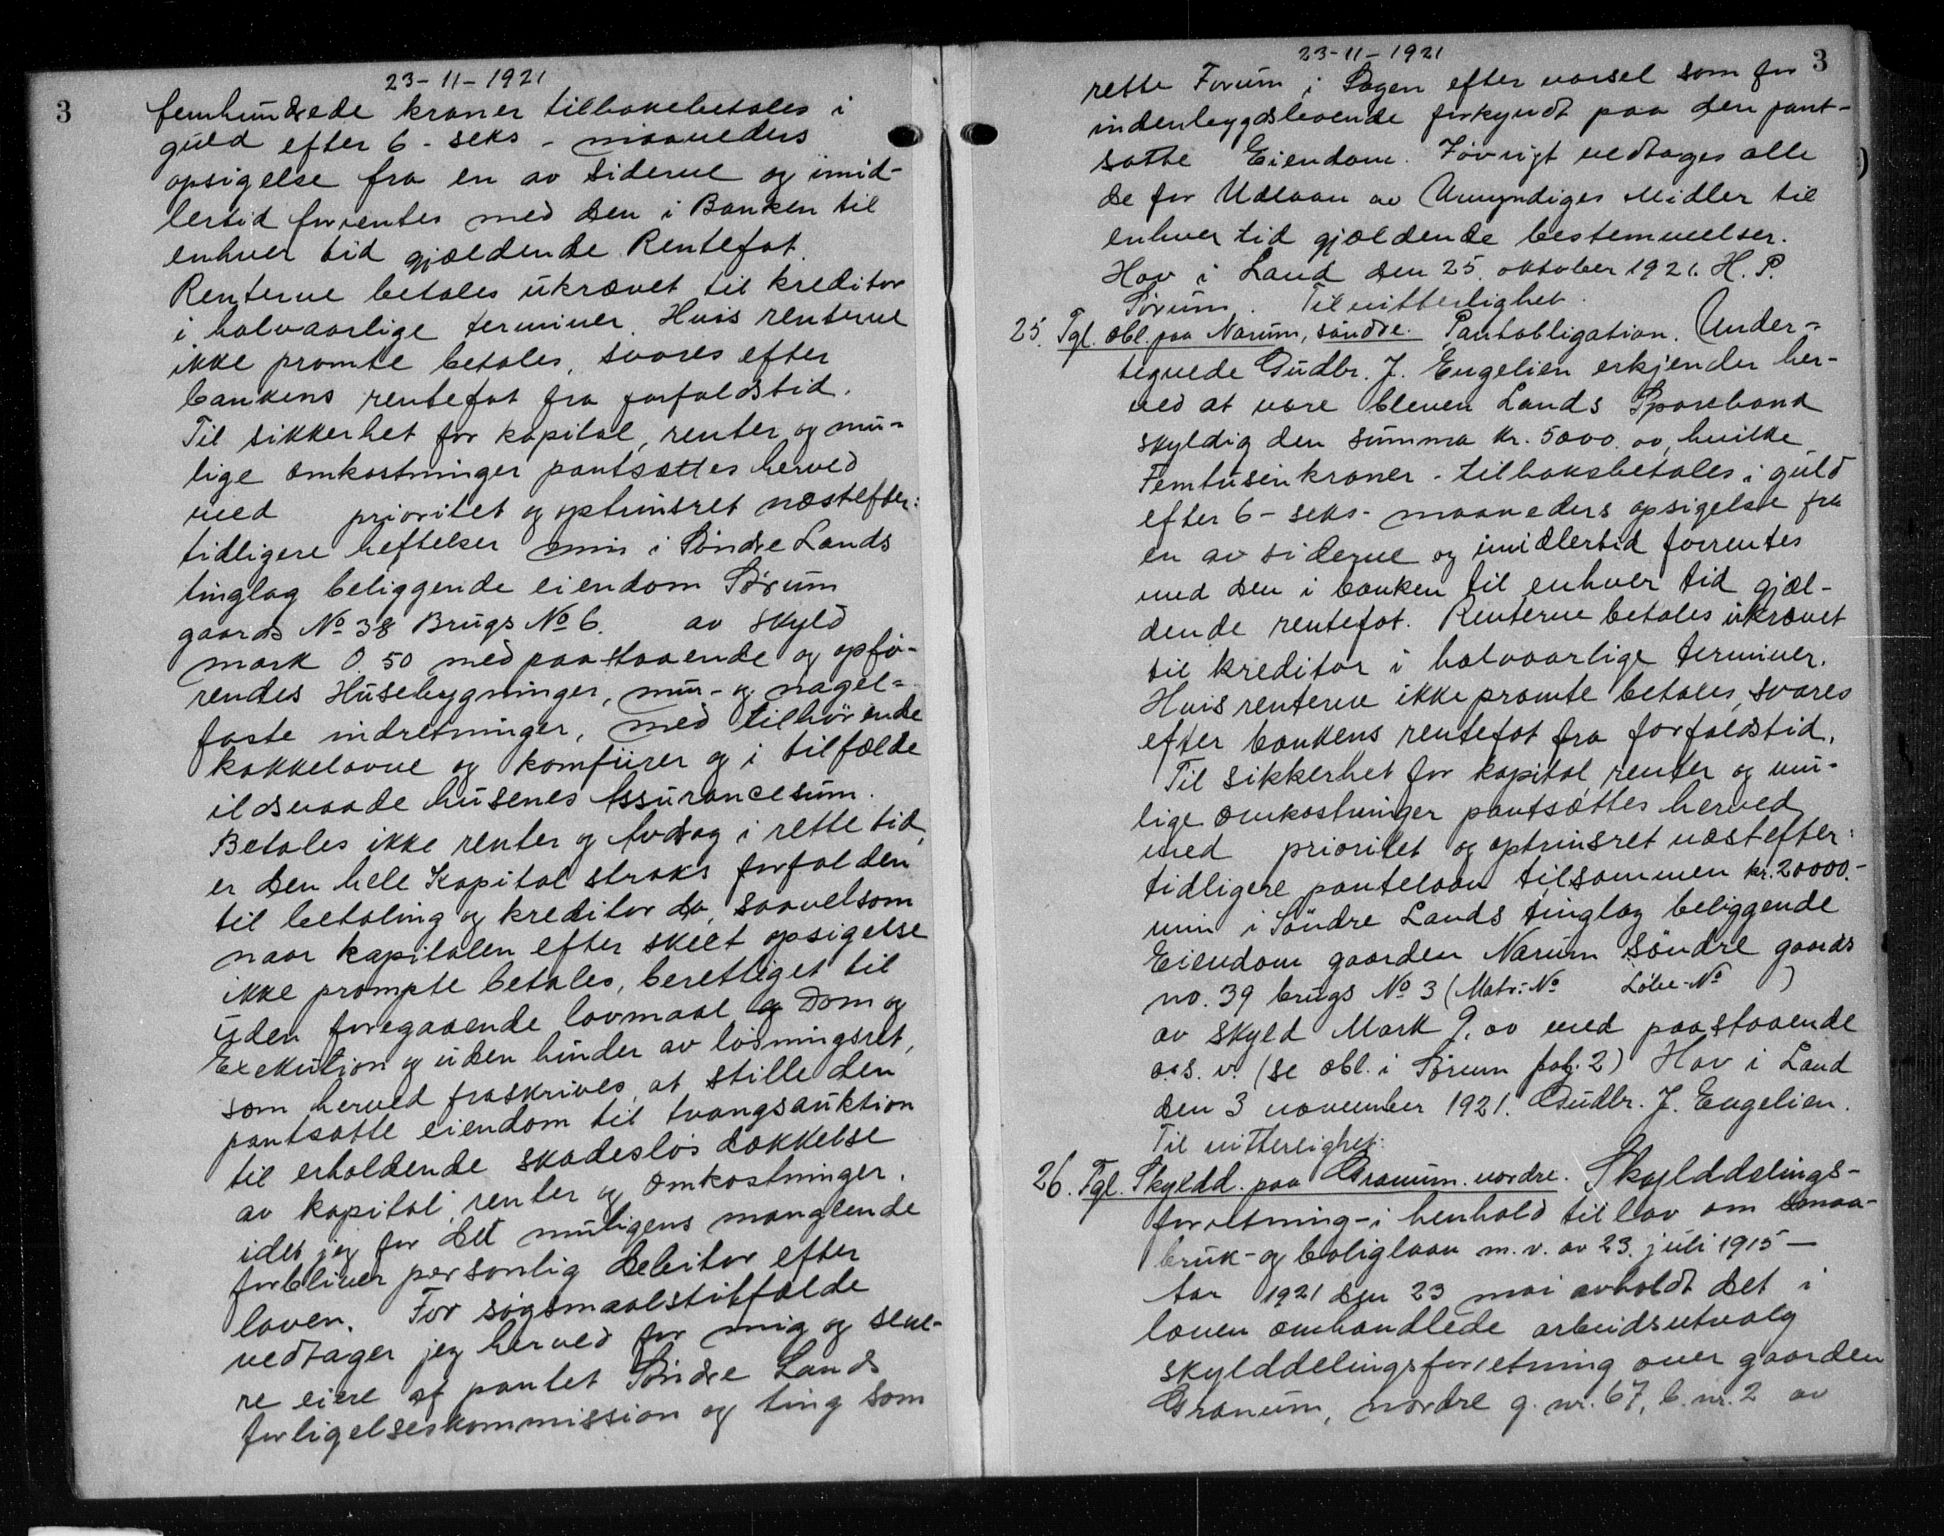 3
23-11-1921
femhundrede kroner tilbakebetales i
guld efter 6 - seks - maaneders
opsigelse fra en av siderne og imid-
lertid forrentes med den i Banken til
enhver tid gjældende Rentefot.
Renterne betales ukrævet til kreditor
i halvaarlige terminer. Hvis renterne
ikke promte betales, svares efter
bankens rentefot fra forfaldstid.
Til sikkerhet for kapital, renter og mu-
lige omkostninger pantsættes herved
med prioritet og optrinsret næstefter:
tidligere heftelser min i Søndre Lands
tinglag beliggende eiendom Sørum
gaards № 38 Brugs № 6. av skyld
mark 0.50 med paastaaende og opfø-
rendes Husebygninger, mur- og nagel-
faste indretninger, med tilhørende
kakkelovne og komfürer og i tilfælde
ildsvaade husenes Assurancesum.
Betales ikke renter og Avdrag i rette tid,
er den hele Kapital straks forfalden
til betaling og kreditor da, saavelsom
naar kapitalen efter skeet opsigelse
ikke prompte betales, berettiget til
uden foregaaende lovmaal og Dom og
Exekution og uden hinder av løsningsret,
som herved fraskrives, at stille den
pantsatte eiendom til tvangsauktion
til erholdende skadesløs dækkelse
av kapital, renter og omkostninger.
idet jeg for det muligens manglende
forbliver personlig debitor efter
loven. For søgsmaalstilfælde
vedtager jeg herved for mig og sene-
re eiere af pantet Søndre Lands
forligelseskommission og ting som
23-11-1921
3
rette Forum i Sagen efter varsel som for
indenbygdsboende forkyndt paa den pant-
satte Eiendom. Iøvrigt vedtages alle
de for Udlaan av Umyndiges Midler til
enhver tid gjældende bestemmelser.
Hov i Land den 25. oktober 1921. H. P.
Sørum. Til vitterlighet.
25. Tgl. obl. paa Narum, søndre. Pantobligation. Under-
tegnede Gudbr. J. Engelien erkjender her-
ved at være bleven Lands Sparebank
skyldig den summa kr. 5000.00, hvilke
Femtusin kroner - tilbakebetales i guld
efter 6 - seks - maaneders opsigelse fra
en av siderne og imidlertid forrentes
med den i banken til enhver tid gjæl-
dende rentefot. Renterne betales ukrævet
til kreditor i halvaarlige terminer.
Hvis renterne ikke promte betales, svares
efter bankens rentefot fra forfaldstid.
Til sikkerhet for kapital, renter og mu-
lige omkostninger pantsættes herved
med prioritet og optrinsret næstefter:
tidligere pantelaan tilsammen kr. 20000.-
min i Søndre Lands tinglag beliggende
Eiendom gaarden Narum søndre gaards
no. 39 brugs № 3 (Matr.-№ Løbe-№ )
av skyld Mark 9,00 med paastaaende
o.s.v. (se obl. i Sørum fol. 2) Hov i Land
den 3 november 1921. Gudbr. J. Engelien.
Til vitterlighet:
26. Tgl. Skyldd. paa Granum nordre. Skylddelings-
forretning - i henhold til lov om smaa-
bruk- og boliglaan m.v. av 23. juli 1915 —
Aar 1921 den 23 mai avholdt det i
loven omhandlede arbeidsutvalg
skylddelingsforretning over gaarden
Granum, nordre g. nr. 67, b. nr. 2 av